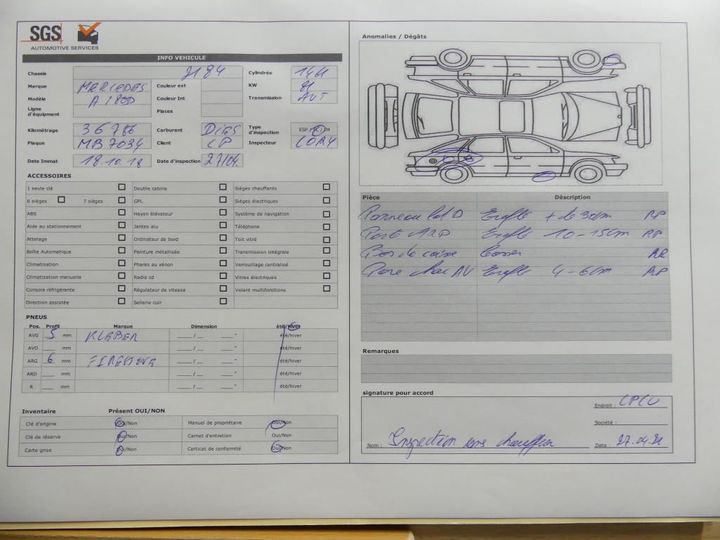 SGS
AUTOMOTIVE SERVICES
INFO VEHICULE
Chassis 2184 Cylindrée 1461
Marque MERCEDES Couleur ext KW
Modèle A 180D Couleur Int Transmission AUT
Ligne d'équipement Places
Kilométrage 36786 Carburant DIES Type d'inspection
Plaque MB7034 Client LP Inspecteur
Date Immat. 18.10.18 Date d'inspection 27/04
ACCESSOIRES
1 seule clé Double cabine Sièges chauffants
5 sièges 7 sièges GPL Sièges électriques
ABS Hayon élévateur Système de navigation
Aide au stationnement Jantes alu Téléphone
Attelage Ordinateur de bord Toit vitré
Boîte Automatique Peinture métallisée Transmission intégrale
Climatisation Phares au xénon Verrouillage centralisé
Climatisation manuelle Radio cd Vitres électriques
Console réfrigérante Régulateur de vitesse Volant multifonctions
Direction assistée Sellerie cuir
PNEUS
Pos. Profil Marque Dimension été/hiver
AVG 5 mm KLEBER été/hiver
AVD mm été/hiver
ARG 6 mm été/hiver
ARD mm été/hiver
R mm été/hiver
Inventaire Présent OUI/NON
Clé d'origine Oui/Non Manuel de propriétaire Oui/Non
Clé de réserve Oui/Non Carnet d'entretien Oui/Non
Carte grise Oui/Non Certicat de conformité Oui/Non
Anomalies / Dégâts
Pièce Déscription
Panneau lat D Eraflé + de 30cm RP
Porte ARD Eraflé 10-15cm RP
Bas de caisse
Pare choc AV Eraflé 4-6cm
Remarques
signature pour accord
Endroit :
Société :
Nom : Inspection sans chauffeur Date : 27.04.21